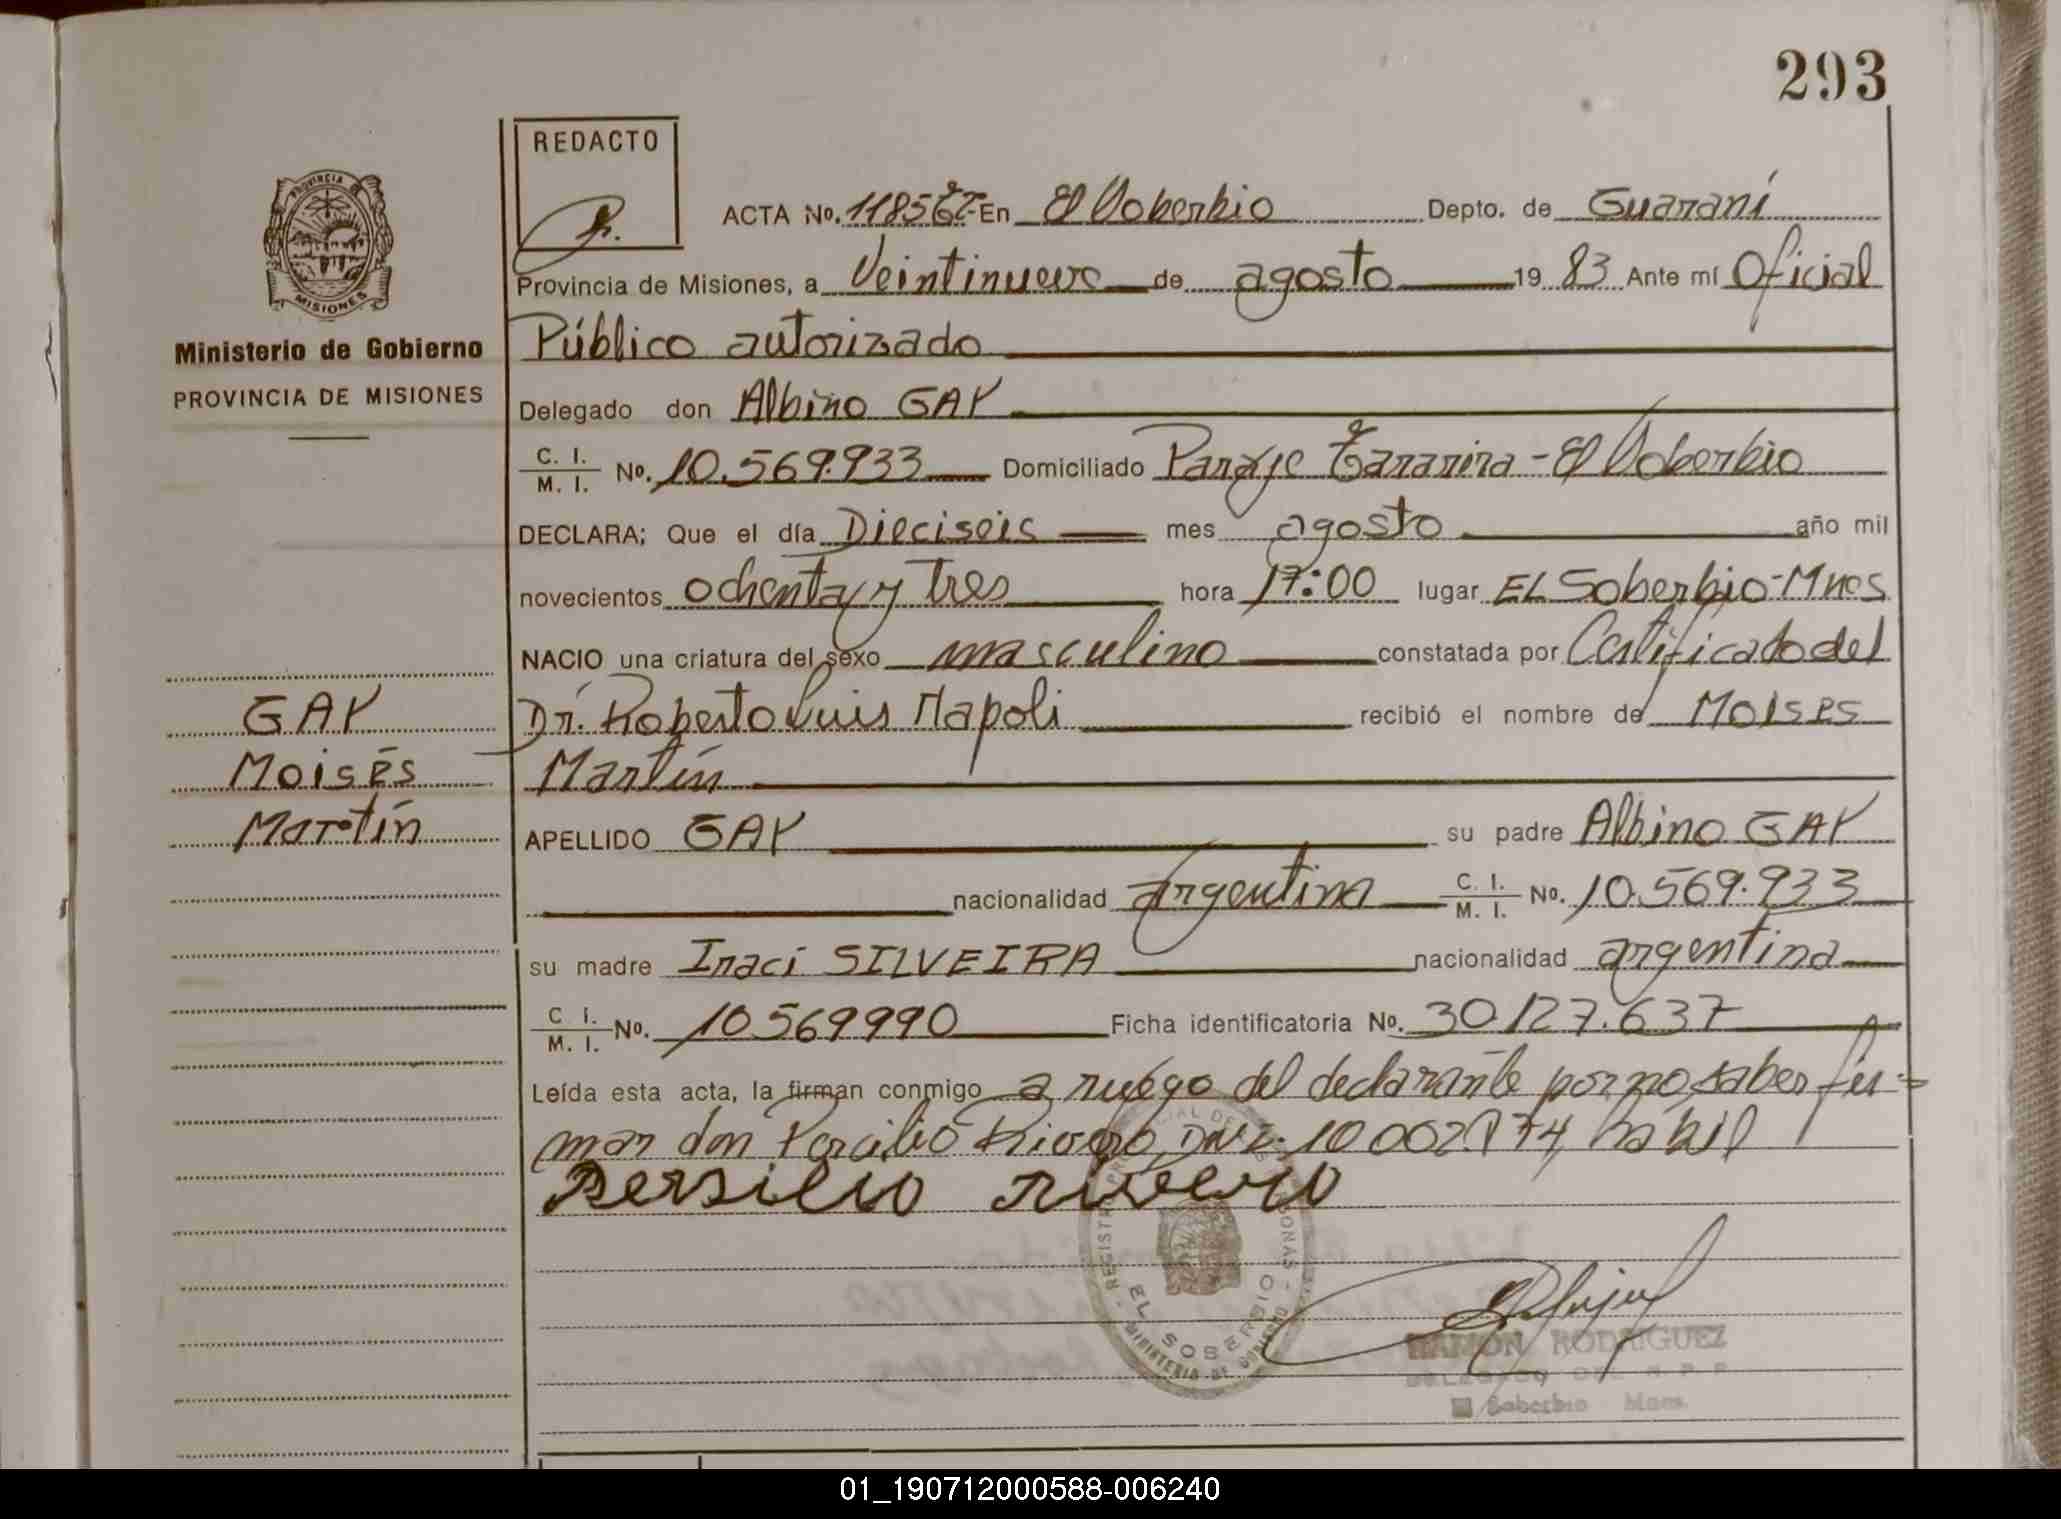 293
REDACTO
ACTA No. En El Soberbio Depto. de Guaraní
Provincia de Misiones, a Veintinueve de agosto 19 83 Ante mí Oficial
Público autorizado
PROVINCIA DE
MISIONES
Ministerio de Gobierno
PROVINCIA DE MISIONES
Delegado don Albino GAY
C. I.
M. I. No. 10.569.933 Domiciliado Paraje Tararira - El Soberbio
DECLARA; Que el día Dieciseis mes agosto año mil
novecientos ochenta y tres hora 17:00 lugar EL Soberbio-Mnes
NACIO una criatura del sexo masculino constatada por Certificado del
GAY
Moisés
Martín
Dr. Roberto Luis Napoli recibió el nombre de MOISES
Martín
APELLIDO GAY su padre Albino GAY
nacionalidad argentina C. I.
M. I. No. 10.569.933
su madre Iraci SILVEIRA nacionalidad argentina
C I.
M. I. No. 10569990 Ficha identificatoria No. 30.127.637
Leída esta acta, la firman conmigo a ruego del declarante por no saber fir=
mar don Percilio Rivero, DNI. hábil
Persilio rivero
EL SOBERBIO
MINISTERIO DE GOBIERNO
RAMON RODRIGUEZ
DELEGADO DEL R. P. P.
El Soberbio Mnes.
01_190712000588-006240